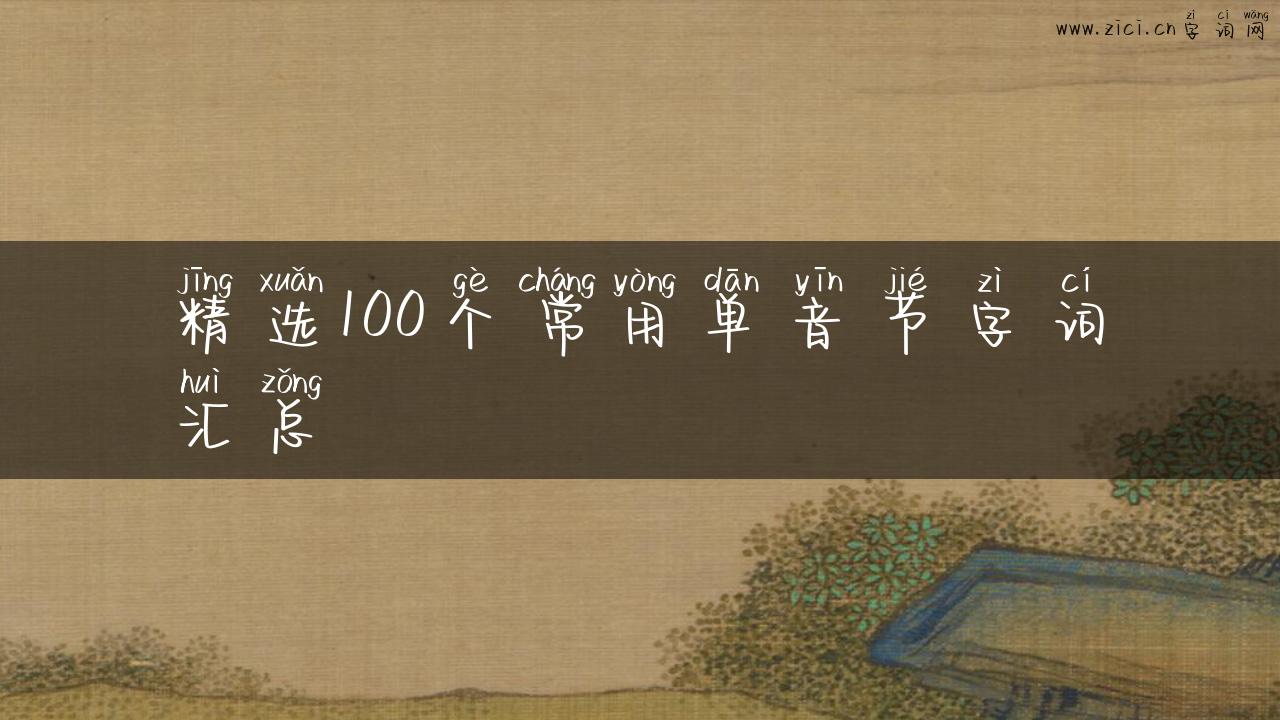 zì cí wǎng
www.zici.cn字词网
jīng xuǎn gè cháng yòng dān yīn jié zì cí
精选100个常用单音节字词
huì zǒng
汇总